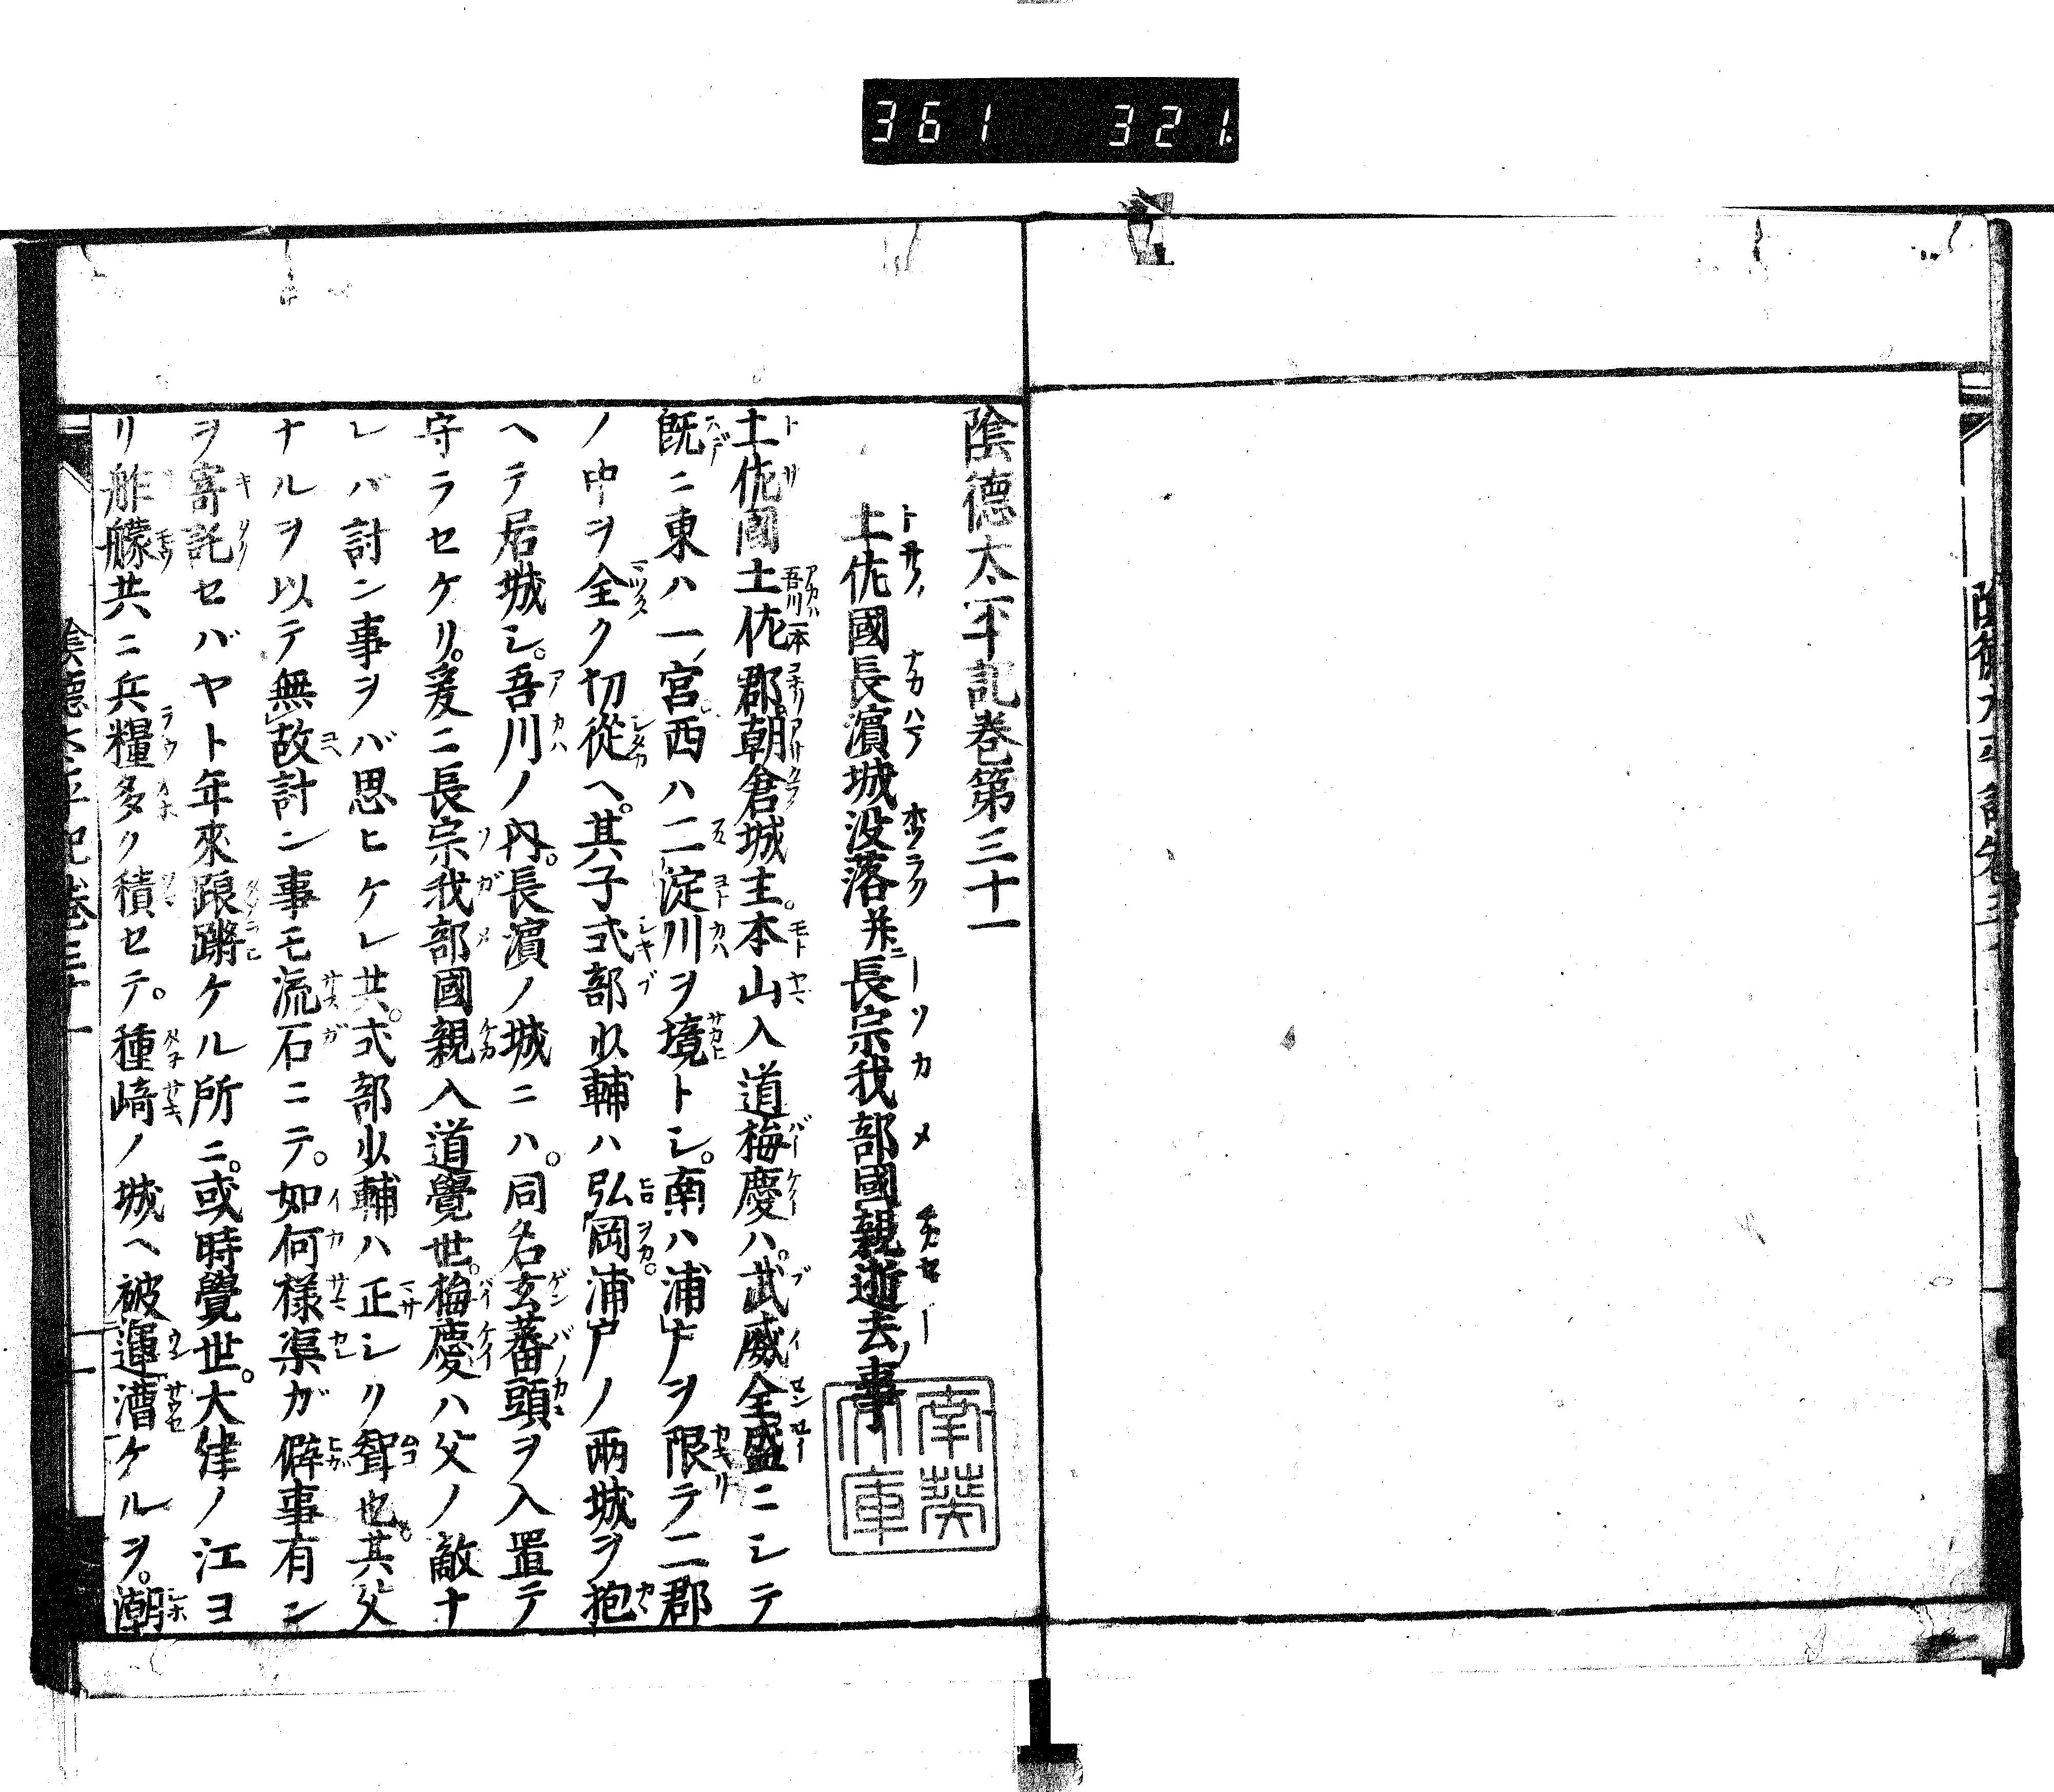 361 321
陰德太平記卷第三十一
土佐國長濵城没落并ニ長宗我部國親逝去ノ事
土佐國土佐郡朝倉城主。本山入道梅慶ハ。武威全盛ニシテ
既ニ東ハ一ノ宮西ハ二淀川ヲ境トシ。南ハ浦戸ヲ限テ二郡
ノ中ヲ全ク切從ヘ。其子式部少輔ハ弘岡浦戸ノ兩城ヲ抱
ヘテ居城シ。吾川ノ内。長濵ノ城ニハ。同名玄蕃頭ヲ入置テ
守ラセケリ。爰ニ長宗我部國親入道覺世。梅慶ハ父ノ敵ナ
レバ討ン事ヲバ思ヒケレ共。式部少輔ハ正シリ聟也。其父
ナルヲ以テ無故討ン事モ流石ニテ。如何様渠ガ僻事有ン
ヲ寄託セバヤト年來踉蹡ケル所ニ。或時覺世。大津ノ江ヨ
リ舴艨共ニ兵糧多ク積セテ。種﨑ノ城ヘ被運漕ケルヲ。潮
陰德太平記卷三十一
南葵文庫